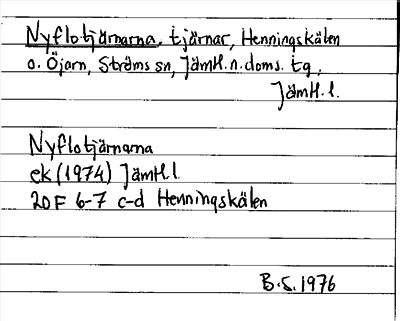 Nyflotjärnarna, tjärnar, Henningskälen
o. Öjarn, Ströms sn, Jämtl.n.doms. tg,
Jämtl.l.
Nyflotjärnarna
ek (1974) Jämtl.l.
20F 6-7 c-d Henningskälen
B.S. 1976